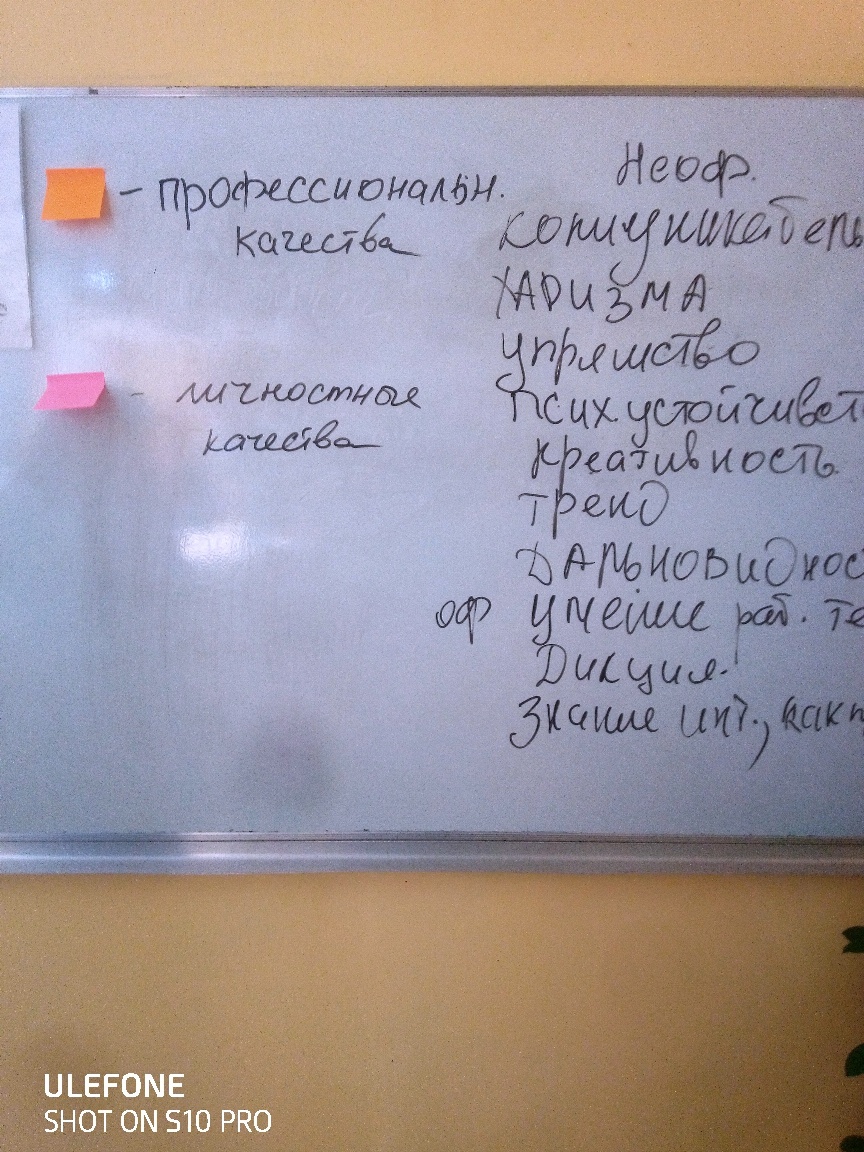 - профессиональн.
качества
- личностные
качества
Неоф.
Коммуникабель
ХАРИЗМА
упрямство
Психустойчивст
креативность
тренд
ДАЛЬНОВидноc
оф умение раб. те
Дикция.
Знание инт., как п
ULEFONE
SHOT ON S10 PRO